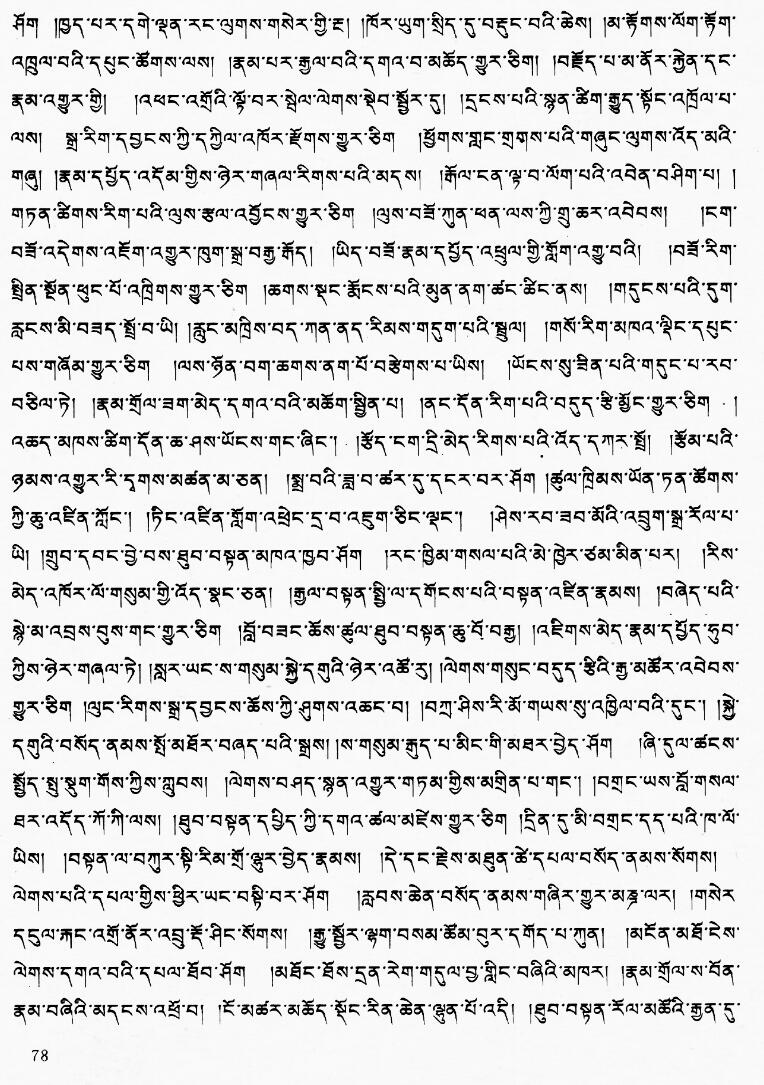 ཤོག །ཁྱད་པར་དགེ་ལྡན་རང་ལུགས་གསེར་གྱི་རྔ། །ཁོར་ཡུག་སྲིད་དུ་བརྡུང་བའི་ཆེས། །མ་རྟོགས་ལོག་རྟོག་
འཁྲུལ་བའི་དཔུང་ཚོགས་ལས། །རྣམ་པར་རྒྱལ་བའི་དགའ་བ་མཆོད་གྱུར་ཅིག། །བརྗོད་པ་མ་ནོར་རྐྱེན་དང་
རྣམ་འགྱུར་གྱི། །འཕང་འགྲོའི་ལྟོ་བར་སྤེལ་ལེགས་སྡེབ་སྦྱོར་དུ། །དྲངས་པའི་སྙན་ཚིག་རྒྱུད་སྟོང་འཁྲོལ་པ་
ལས། སྒྲ་རིག་དབྱངས་ཀྱི་དཀྱིལ་འཁོར་རྫོགས་གྱུར་ཅིག །ཕྱོགས་གླང་གྲགས་པའི་གཞུང་ལུགས་འོད་མའི་
གཞུ། །རྣམ་དཔྱོད་འདོམ་གྱིས་ཉེར་གཞལ་རིགས་པའི་མདས། །རྒོལ་ངན་ལྟ་བ་ལོག་པའི་འབེན་བཤིག་པ། །
གཏན་ཚིགས་རིག་པའི་ལུས་རྩལ་འབྱོངས་གྱུར་ཅིག །ལུས་བཟོ་ཀུན་ཕན་ལས་ཀྱི་གྲུ་ཆར་འབེབས། །ངག་
བཟོ་འདེགས་འཇོག་འགྱུར་ཁུག་སྒྲ་བརྒྱ་རྒོད། །ཡིད་བཟོ་རྣམ་དཔྱོད་འཕྲུལ་གྱི་གློག་འགྱུ་བའི། །བཟོ་རིག་
སྤྲིན་སྔོན་ཕུང་པོ་འཁྲིགས་གྱུར་ཅིག །ཆགས་སྡང་རྨོངས་པའི་མུན་ནག་ཚང་ཚིང་ནས། །གདུངས་པའི་དུག་
རླངས་མི་བཟད་སྤྲོ་བ་ཡི། །རླུང་མཁྲིས་བད་ཀན་ནད་རིམས་གདུག་པའི་སྦྲུལ། །གསོ་རིག་མཁའ་ལྡིང་དཔུང་
པས་གཞོམ་གྱུར་ཅིག །ལས་ཉོན་བག་ཆགས་ནག་པོ་བརྩེགས་པ་ཡིས། །ཡོངས་སུ་ཟིན་པའི་གདུང་པ་རབ་
བཅིལ་ཏེ། །རྣམ་གྲོལ་ཟག་མེད་དགའ་བའི་མཆོག་སྦྱིན་པ། །ནང་དོན་རིག་པའི་བདུད་རྩི་མྱོང་གྱུར་ཅིག །
འཆད་མཁས་ཚིག་དོན་ཆ་ཤས་ཡོངས་གང་ཞིང༌། །རྩོད་ངག་དྲི་མེད་རིགས་པའི་འོད་དཀར་སྤྲོ། །རྩོམ་པའི་
ཉམས་འགྱུར་རི་དྭགས་མཚན་མ་ཅན། །སྨྲ་བའི་ཟླ་བ་ཚར་དུ་དངར་བར་ཤོག །ཚུལ་ཁྲིམས་ཡོན་ཏན་ཚོགས་
ཀྱི་ཆུ་འཛིན་ཀློང༌། །ཏིང་འཛིན་གློག་འཕྲེང་དྲ་བ་འཇུག་ཅིང་ལྡང༌། །ཤེས་རབ་ཟབ་མོའི་འབྲུག་སྒྲ་རོལ་པ་
ཡི། །གྲུབ་དབང་བྱེ་བས་ཐུབ་བསྟན་མཁའ་ཁྱབ་ཤོག །རང་ཁྱིམ་གསལ་པའི་མེ་ཁྱེར་ཙམ་མིན་པར། །རིས་
མེད་འཁོར་ལོ་གསུམ་གྱི་འོད་སྣང་ཅན། །རྒྱལ་བསྟན་སྤྱི་ལ་དགོངས་པའི་བསྟན་འཛིན་རྣམས། །བཞེད་པའི་
སྙེ་མ་འབྲས་བུས་གང་གྱུར་ཅིག །བློ་བཟང་ཆོས་ཚུལ་ཐུབ་བསྟན་ཆུ་བོ་བརྒྱ། །འཇིགས་མེད་རྣམ་དཔྱོད་ཧུབ་
ཀྱིས་ཉེར་གཞལ་ཏེ། །སླར་ཡང་ས་གསུམ་སྐྱེ་དགུའི་ཉེར་འཚོ་རུ། །ལེགས་གསུང་བདུད་རྩིའི་རྒྱ་མཚོར་འབེབས་
གྱུར་ཅིག །ལུང་རིགས་སྒྲ་དབྱངས་ཆོས་ཀྱི་ཤུགས་འཆང་བ། །བཀྲ་ཤིས་རི་མོ་གཡས་སུ་འཁྱིལ་བའི་དུང༌། །སྐྱེ་
དགུའི་བསོད་ནམས་སྤོ་མཐོར་བཞད་པའི་སྒྲས། །ས་གསུམ་རྒུད་པ་མིང་གི་མཐར་བྱེད་ཤོག །ཞི་དུལ་ཚངས་
སྤྱོད་སྤུ་སྡུག་གོས་ཀྱིས་ཀླུབས། །ལེགས་བཤད་སྙན་འགྱུར་གཏམ་གྱིས་མགྲིན་པ་གང༌། །བགྲང་ཡས་བློ་གསལ་
ཐར་འདོད་ཀོ་ཀི་ལས། །ཐུབ་བསྟན་དཔྱིད་ཀྱི་དགའ་ཚལ་མཛེས་གྱུར་ཅིག །དྲིན་དུ་མི་བགྲང་དད་པའི་ཁ་ལོ་
ཡིས། །བསྟན་ལ་བཀུར་སྟི་རིམ་གྲོ་ལྷུར་བྱེད་རྣམས། །དེ་དང་རྗེས་མཐུན་ཚེ་དཔལ་བསོད་ནམས་སོགས།
ལེགས་པའི་དཔལ་གྱིས་ཕྱིར་ཡང་བསྟི་བར་ཤོག །རླབས་ཆེན་བསོད་ནམས་གཞིར་གྱུར་མཎྜ་ལར། །གསེར
དངུལ་རྐང་འགྲོ་ནོར་འབྲུ་རྡོ་ཤིང་སོགས། །རྒྱུ་སྦྱོར་ལྷག་བསམ་ཚོམ་བུར་དགོད་པ་ཀུན། །མངོན་མཐོ་ངེས་
ལེགས་དགའ་བའི་དཔལ་ཐོབ་ཤོག །མཐོང་ཐོས་དྲན་རེག་གདུལ་བྱ་གླིང་བཞིའི་མཁར། །རྣམ་གྲོལ་ས་བོན་
རྣམ་བཞིའི་མདངས་འཕྲོ་བ། །ངོ་མཚར་མཆོད་སྡོང་རིན་ཆེན་ལྷུན་པོ་འདི། །ཐུབ་བསྟན་རོལ་མཚོའི་རྒྱན་དུ་
78